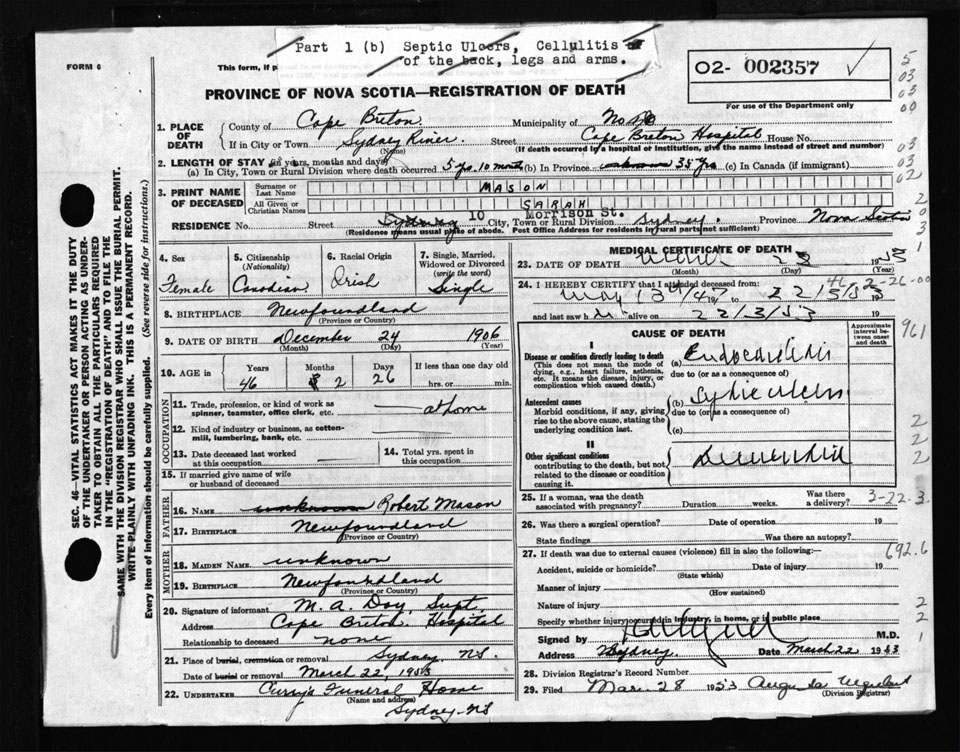 Part 1 (b) Septic Ulcers, Cellulitis
of the back, legs and arms.
FORM 6
This form, if p
02- 002357
For use of the Department only
PROVINCE OF NOVA SCOTIA—REGISTRATION OF DEATH
1. PLACE OF DEATH
County of Cape Breton Municipality of
If in City or Town Sydney River Street Cape Breton Hospital House No.
(Name) (If death occurred in a hospital or institution, give the name instead of street and number)
2. LENGTH OF STAY (in years, months and days)
(a) In City, Town or Rural Division where death occurred 5 yrs. 10 months (b) In Province unknown 35 yrs (c) In Canada (if immigrant)
3. PRINT NAME OF DECEASED
Surname or Last Name MASON
All Given or Christian Names SARAH
RESIDENCE No. Street Sydney 10 Morrison St. City, Town or Rural Division Sydney. Province Nova Scotia
(Residence means usual place of abode. Post Office Address for residents in rural parts not sufficient)
4. Sex
Female
5. Citizenship
(Nationality)
Canadian
6. Racial Origin
Irish
7. Single, Married, Widowed or Divorced
(write the word)
Single
8. BIRTHPLACE Newfoundland
(Province or Country)
9. DATE OF BIRTH December 24 1906
(Month) (Day) (Year)
10. AGE in
Years Months Days If less than one day
46 2 26 hrs. or min.
OCCUPATION
11. Trade, profession, or kind of work as spinner, teamster, office clerk, etc. at home
12. Kind of industry or business, as cotton-mill, lumbering, bank, etc.
13. Date deceased last worked at this occupation
14. Total yrs. spent in this occupation
15. If married give name of wife or husband of deceased
FATHER
16. NAME unknown Robert Mason
17. BIRTHPLACE Newfoundland
(Province or Country)
MOTHER
18. MAIDEN NAME unknown
19. BIRTHPLACE Newfoundland
(Province or Country)
20. Signature of informant M. A. Doy, Supt.
Address Cape Breton Hospital
Relationship to deceased none
21. Place of burial, cremation or removal Sydney NS.
Date of burial or removal March 22, 1953
22. UNDERTAKER Curry's Funeral Home
(Name and address)
Sydney-NS
MEDICAL CERTIFICATE OF DEATH
23. DATE OF DEATH 19
(Month) (Day) (Year)
24. I HEREBY CERTIFY that I attended deceased from:
May
and last saw h alive on 22/3/53
CAUSE OF DEATH
Approximate interval between onset and death
I
Disease or condition directly leading to death
(This does not mean the mode of dying, e.g., heart failure, asthenia, etc. It means the disease, injury, or complication which caused death.)
(a) Endocarditis
due to (or as a consequence of)
Antecedent causes
Morbid conditions, if any, giving rise to the above cause, stating the underlying condition last.
(b) Septic ulcers
due to (or as a consequence of)
(c)
II
Other significant conditions
contributing to the death, but not related to the disease or condition causing it.
25. If a woman, was the death associated with pregnancy? Duration weeks. Was there a delivery? 3-22-3
26. Was there a surgical operation? Date of operation 19
State findings Was there an autopsy?
27. If death was due to external causes (violence) fill in also the following:—
692.6
Accident, suicide or homicide? Date of injury 19
(State which)
Manner of injury
(How sustained)
Nature of injury
Specify whether injury occurred in industry, in home, or in public place
Signed by M.D.
Address Sydney. Date March 22 1953
28. Division Registrar's Record Number
29. Filed Mar. 28 1953
(Division Registrar)
SEC. 46—VITAL STATISTICS ACT MAKES IT THE DUTY
OF THE UNDERTAKER OR PERSON ACTING AS UNDER-
TAKER TO OBTAIN ALL THE PARTICULARS REQUIRED
IN THE "REGISTRATION OF DEATH" AND TO FILE THE
SAME WITH THE DIVISION REGISTRAR WHO SHALL ISSUE THE BURIAL PERMIT.
WRITE PLAINLY WITH UNFADING INK. THIS IS A PERMANENT RECORD.
Every item of information should be carefully supplied. (See reverse side for instructions.)
5
03
03
00
03
03
02
2
0
3
1
2-26-00
961
2
2
2
2
2
1